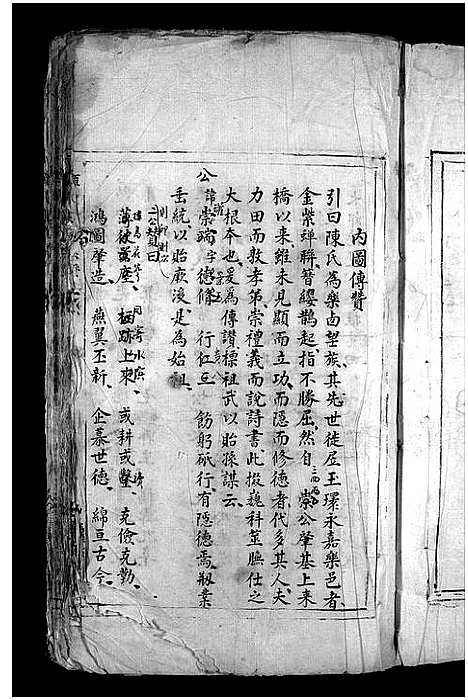 內圖傳贊
引曰陳氏為樂卤望族其先世徒居玉環永嘉樂邑者
金紫蟬聯簪纓鵲起指不勝屈然自崇公肇基上来
橋以来雖未見顯而立功而隱而修德者代多其人夫
力田而敦孝弟崇禮義而說詩書此掇巍科莖膴仕之
大根本也爰為傳讃標祖武以貽孫謀云
公諱崇端字德條行仁 飭躬砥行有隱德焉剏業
垂統以貽厥後是為始祖
薄彼囂塵 栖跡上來 或耕或鑿 克儉克勤
鴻圖肇造 燕翼丕新 企慕世德 綿亘古今